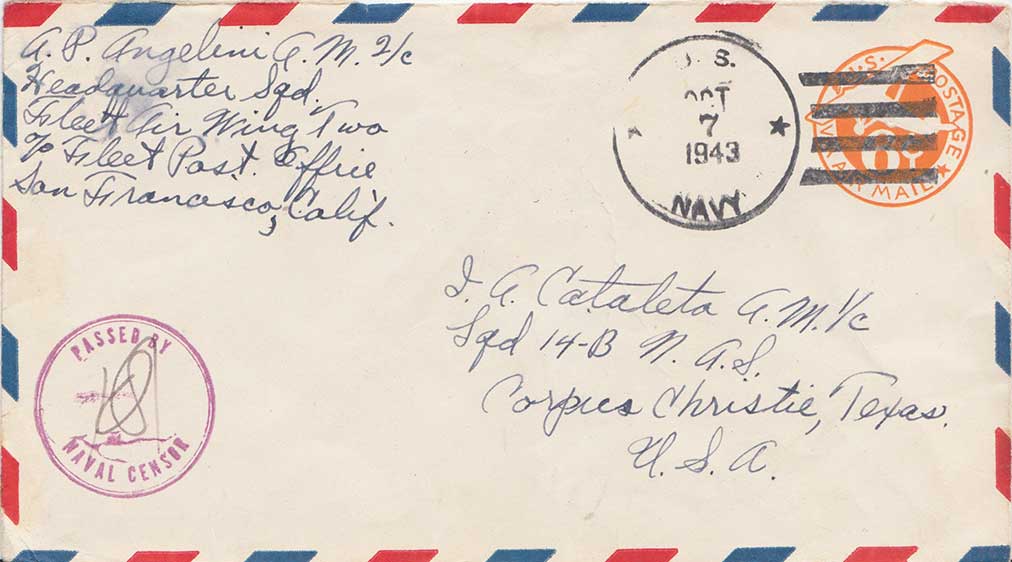 A. P. Angelini A.M. 2/c
Headquarter Sqd.
Fleet Air Wing Two
c/o Fleet Post Office
San Francisco, Calif.
U.S.
OCT
7
1943
NAVY
U.S. POSTAGE
6¢
VIA AIR MAIL
I. A. Cataleta A.M. 1/c
Sqd 14-B N.A.S.
Corpus Christie, Texas.
U.S.A.
PASSED BY
NAVAL CENSOR